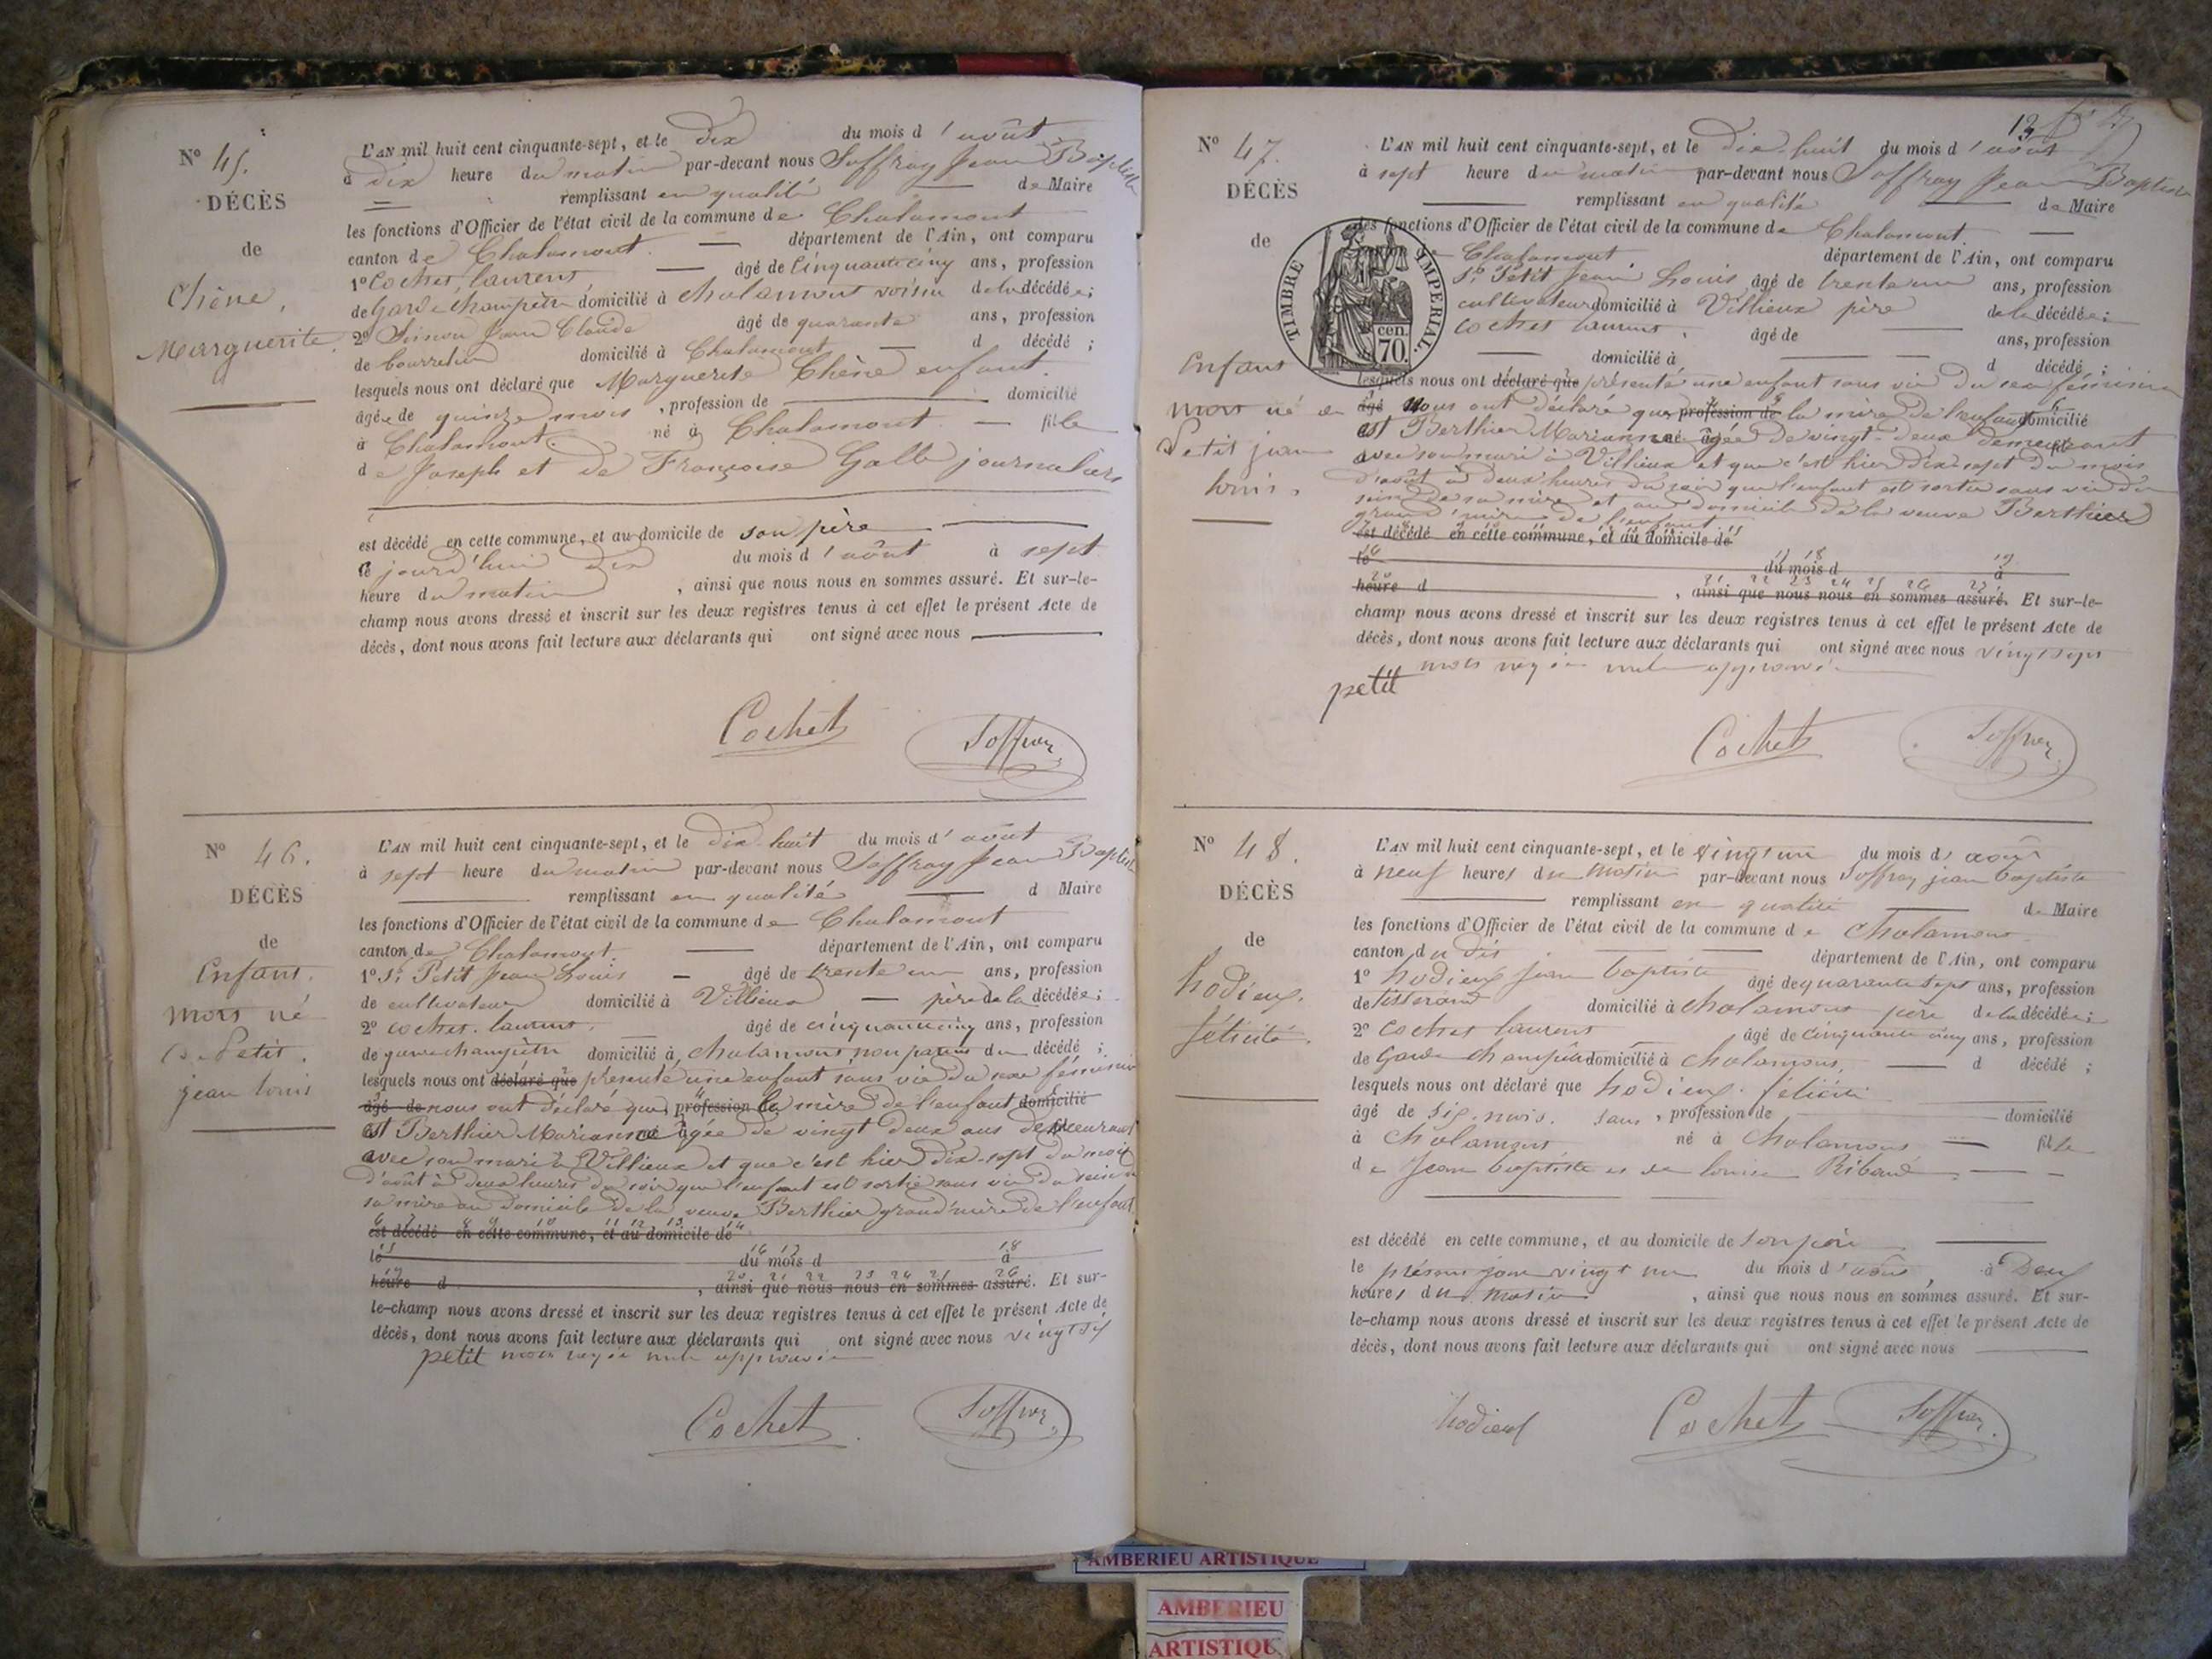 N° 45.
DÉCÈS
de
Chêne,
Marguerite.
L'AN mil huit cent cinquante-sept, et le dix du mois d'août
à dix heure du matin par-devant nous Soffray Jean Baptiste
remplissant en qualité de Maire
les fonctions d'Officier de l'état civil de la commune de Chalamont
canton de Chalamont. département de l'Ain, ont comparu
1° Cochet, laurent âgé de Cinquante cinq ans, profession
de Garde champêtre domicilié à chalamont voisin de la décédée;
2° Simon Jean Claude âgé de quarante ans, profession
de bourrelier domicilié à Chalamont d décédé;
lesquels nous ont déclaré que Marguerite Chêne enfant.
âgée de quinze mois, profession de domicilié
à Chalamont. né à Chalamont fille
de Joseph et de Françoise Galle journaliers
est décédé en cette commune, et au domicile de son père
le jourd'hui dix du mois d'août à sept
heure du matin, ainsi que nous nous en sommes assuré. Et sur-le-
champ nous avons dressé et inscrit sur les deux registres tenus à cet effet le présent Acte de
décès, dont nous avons fait lecture aux déclarants qui ont signé avec nous
Cochet Soffray
N° 46.
DÉCÈS
de
Enfant.
mort né
de Petit.
jean louis
L'AN mil huit cent cinquante-sept, et le dix-huit du mois d'août
à sept heure du matin par-devant nous Soffray Jean Baptiste
remplissant en qualité d Maire
les fonctions d'Officier de l'état civil de la commune de Chalamont
canton de Chalamont. département de l'Ain, ont comparu
1° Sr. Petit Jean Louis âgé de trente un ans, profession
de cultivateur domicilié à Villieux père de la décédée;
2° Cochet. laurent, âgé de cinquante cinq ans, profession
de garde champêtre domicilié à chalamont, non parent du décédé;
lesquels nous ont déclaré que présenté une enfant sans vie du sexe féminin
âgé de nous ont déclaré que profession de la mère de l'enfant domicilié
est Berthier Marianne âgée de vingt deux ans demeurant
avec son mari à Villieux et que c'est hier dix-sept du mois
d'août à deux heures du soir que l'enfant est sortie sans vie du sein de
sa mère au domicile de la veuve Berthier grand'mère de l'enfant
6 7 8 9 10 11 12 13 14
est décédé en cette commune, et au domicile de
15 16 17 18
le du mois d à
19 20 21 22 23 24 25 26
heure d, ainsi que nous nous en sommes assuré. Et sur-
le-champ nous avons dressé et inscrit sur les deux registres tenus à cet effet le présent Acte de
décès, dont nous avons fait lecture aux déclarants qui ont signé avec nous vingt six
petit mots rayés nuls approuvés
Cochet Soffray
13
N° 47.
DÉCÈS
de
Enfant
mort né de
Petit jean
louis.
TIMBRE IMPERIAL
70 cen.
L'AN mil huit cent cinquante-sept, et le dix-huit du mois d'août
à sept heure du matin par-devant nous Soffray Jean Baptiste
remplissant en qualité de Maire
des fonctions d'Officier de l'état civil de la commune de Chalamont.
canton de Chalamont. département de l'Ain, ont comparu
Sr. Petit Jean Louis âgé de trente un ans, profession
cultivateur domicilié à Villieux père de la décédée;
Cochet laurent, âgé de ans, profession
domicilié à d décédé;
lesquels nous ont déclaré que présenté une enfant sans vie du sexe féminin
âgé nous ont déclaré que profession de la mère de l'enfant domicilié
est Berthier Marianne âgée de vingt-deux demeurant
avec son mari à Villieux et que c'est hier dix-sept du mois
d'août à deux heures du soir que l'enfant est sortie sans vie du
sein de sa mère et au domicile de la veuve Berthier
grand'mère de l'enfant
est décédé en cette commune, et au domicile de
le du mois d à
heure d, ainsi que nous nous en sommes assuré. Et sur-le-
champ nous avons dressé et inscrit sur les deux registres tenus à cet effet le présent Acte de
décès, dont nous avons fait lecture aux déclarants qui ont signé avec nous vingt sept
mots rayés nuls approuvés
petit
Cochet Soffray
N° 48.
DÉCÈS
de
hodieux.
félicité.
L'AN mil huit cent cinquante-sept, et le vingt un du mois d'août
à neuf heures du matin par-devant nous Soffray jean baptiste
remplissant en qualité de Maire
les fonctions d'Officier de l'état civil de la commune de chalamont
canton du dit département de l'Ain, ont comparu
1° hodieux jean baptiste âgé de quarante sept ans, profession
de tisserand domicilié à chalamont père de la décédée;
2° Cochet laurent âgé de cinquante cinq ans, profession
de Garde champêtre domicilié à chalamont, d décédé;
lesquels nous ont déclaré que hodieux. félicité
âgé de six mois. sans, profession de domicilié
à chalamont né à chalamont fille
de Jean baptiste et de louise Ribaud
est décédé en cette commune, et au domicile de son père
le présent jour vingt un du mois d'août, à Deux
heures du matin, ainsi que nous nous en sommes assuré. Et sur-
le-champ nous avons dressé et inscrit sur les deux registres tenus à cet effet le présent Acte de
décès, dont nous avons fait lecture aux déclarants qui ont signé avec nous
hodieux Cochet Soffray
AMBERIEU ARTISTIQUE
AMBERIEU
ARTISTIQU